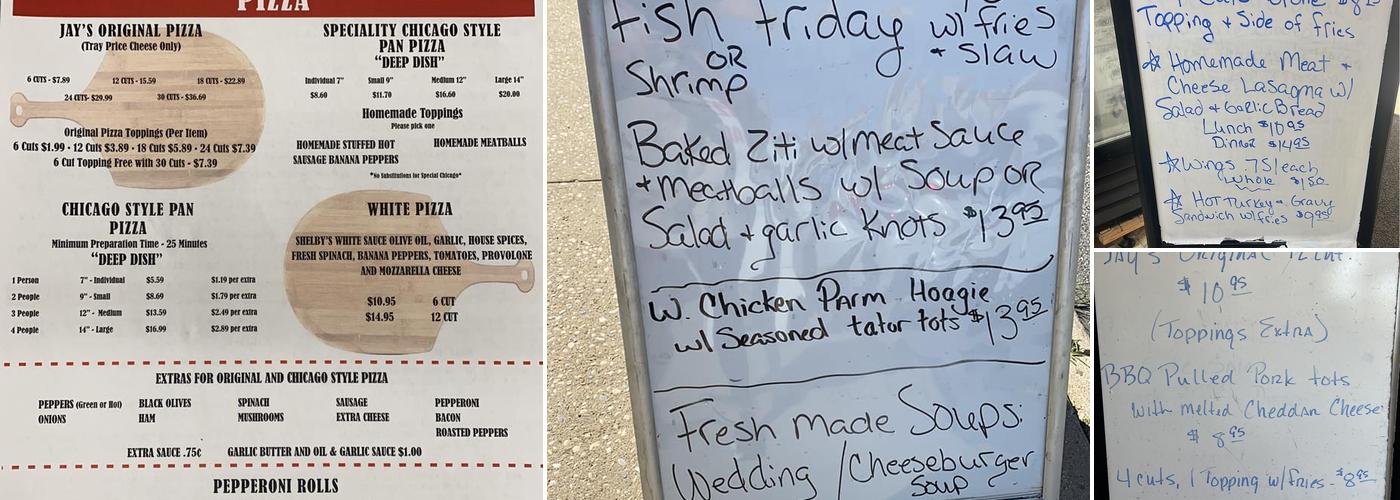 PIZZA
JAY'S ORIGINAL PIZZA
(Tray Price Cheese Only)
6 CUTS - $7.89 12 CUTS - 15.59 18 CUTS - $22.89
24 CUTS- $29.99 30 CUTS - $36.69
Original Pizza Toppings (Per Item)
6 Cuts $1.99 · 12 Cuts $3.89 · 18 Cuts $5.89 · 24 Cuts $7.39
6 Cut Topping Free with 30 Cuts - $7.39
SPECIALITY CHICAGO STYLE
PAN PIZZA
"DEEP DISH"
Individual 7" Small 9" Medium 12" Large 14"
$8.60 $11.70 $16.60 $20.00
Homemade Toppings
Please pick one
HOMEMADE STUFFED HOT HOMEMADE MEATBALLS
SAUSAGE BANANA PEPPERS
*No Substitutions for Special Chicago*
CHICAGO STYLE PAN
PIZZA
Minimum Preparation Time - 25 Minutes
"DEEP DISH"
1 Person 7" - Individual $5.59 $1.19 per extra
2 People 9" - Small $8.69 $1.79 per extra
3 People 12" - Medium $13.59 $2.49 per extra
4 People 14" - Large $16.99 $2.89 per extra
WHITE PIZZA
SHELBY'S WHITE SAUCE OLIVE OIL, GARLIC, HOUSE SPICES,
FRESH SPINACH, BANANA PEPPERS, TOMATOES, PROVOLONE
AND MOZZARELLA CHEESE
$10.95 6 CUT
$14.95 12 CUT
EXTRAS FOR ORIGINAL AND CHICAGO STYLE PIZZA
PEPPERS (Green or Hot) BLACK OLIVES SPINACH SAUSAGE PEPPERONI
ONIONS HAM MUSHROOMS EXTRA CHEESE BACON
ROASTED PEPPERS
EXTRA SAUCE .75¢ GARLIC BUTTER AND OIL & GARLIC SAUCE $1.00
PEPPERONI ROLLS
Fish Friday w/ fries
OR + Slaw
Shrimp
Baked Ziti w/meat Sauce
+meatballs w/ Soup OR
Salad + garlic Knots $13.95
W. Chicken Parm Hoagie
w/ Seasoned tator tots $13.95
Fresh Made Soups:
Wedding / Cheeseburger
Soup
Topping + Side of fries
☆ Homemade Meat +
Cheese Lasagna w/
Salad + Garlic Bread
Lunch $10.95
Dinner $14.95
☆ Wings .75/each
Whole $1.50
☆ Hot Turkey + Gravy
Sandwich w/fries $9.95
Jay's Original
$10.95
(Toppings Extra)
BBQ Pulled Pork tots
with melted Cheddar Cheese
$8.95
4 cuts, 1 Topping w/fries - $8.95